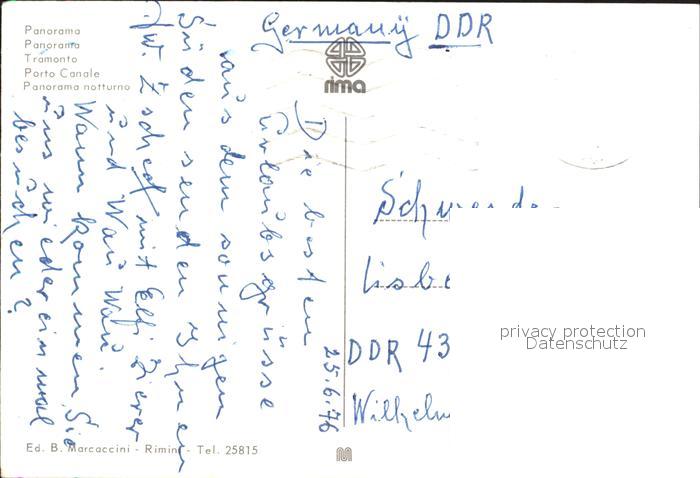 Panorama
Panorama
Tramonto
Porto Canale
Panorama notturno
Germany DDR
rima
25.6.76
Die besten
Urlaubsgrüsse
aus dem sonnigen
Süden senden Ihnen
W. mit Elfi Zierer
und Wau Wau.
Wann kommen Sie
uns wieder einmal
besuchen?
DDR 43
Wilhelm
privacy protection
Datenschutz
Ed. B. Marcaccini - Rimini - Tel. 25815